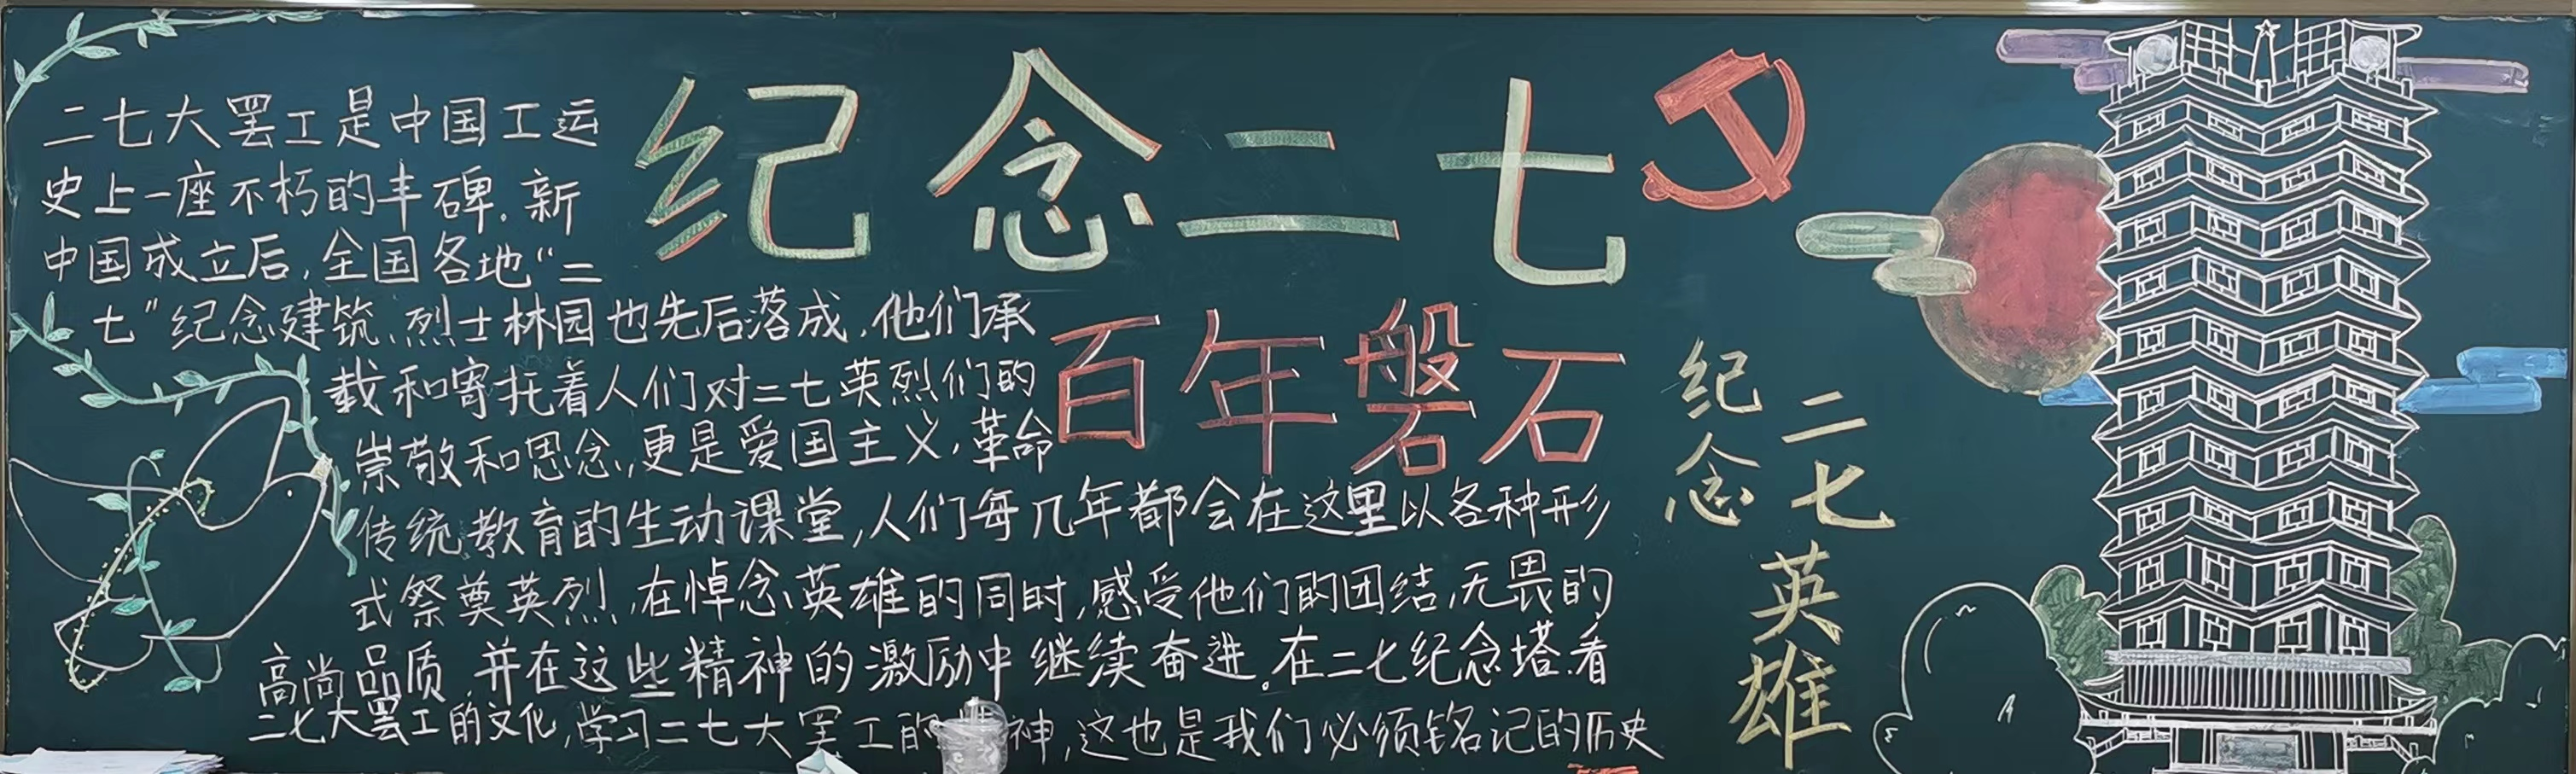 纪念二七
百年磐石
二七大罢工是中国工运
史上一座不朽的丰碑.新
中国成立后,全国各地“二
七”纪念建筑、烈士林园也先后落成,他们承
载和寄托着人们对二七英烈们的
崇敬和思念,更是爱国主义,革命
传统教育的生动课堂,人们每几年都会在这里以各种形
式祭奠英烈,在悼念英雄的同时,感受他们的团结,无畏的
高尚品质,并在这些精神的激励中继续奋进。在二七纪念塔.看
二七大罢工的文化,学习二七大罢工的神,这也是我们必须铭记的历史
纪念
二七
英雄